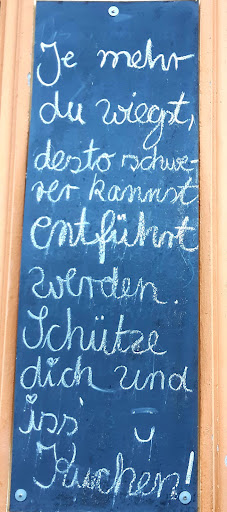 Je mehr
du wiegst,
desto schwe-
rer kannst
entführt
werden.
Schütze
dich und
iss
Kuchen!